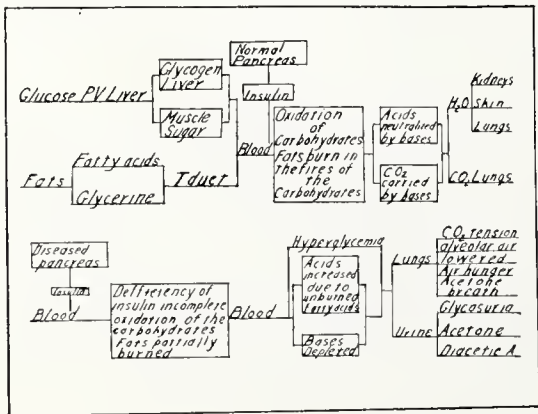 Normal
Pancreas
Glycogen
Liver
Glucose PV Liver
Insulin
Muscle
Sugar
Blood
Oxidation
of
Carbohydrates
Fats burn in
the fires of
the
Carbohydrates
Acids
neutralized
by bases
CO2
carried
by bases
H2O
Kidneys
Skin
Lungs
CO2 Lungs
Fats
Fatty acids
Glycerine
T duct
Diseased
pancreas
Insulin
Blood
Defficiency of
insulin incomplete
oxidation of the
carbohydrates
Fats partially
burned
Blood
Hyperglycemia
Acids
increased
due to
unburned
fatty acids
Bases
Depleted
Lungs
CO2 tension
alveolar air
lowered
Air hunger
Acetone
breath
Urine
Glycosuria
Acetone
Diacetic A.